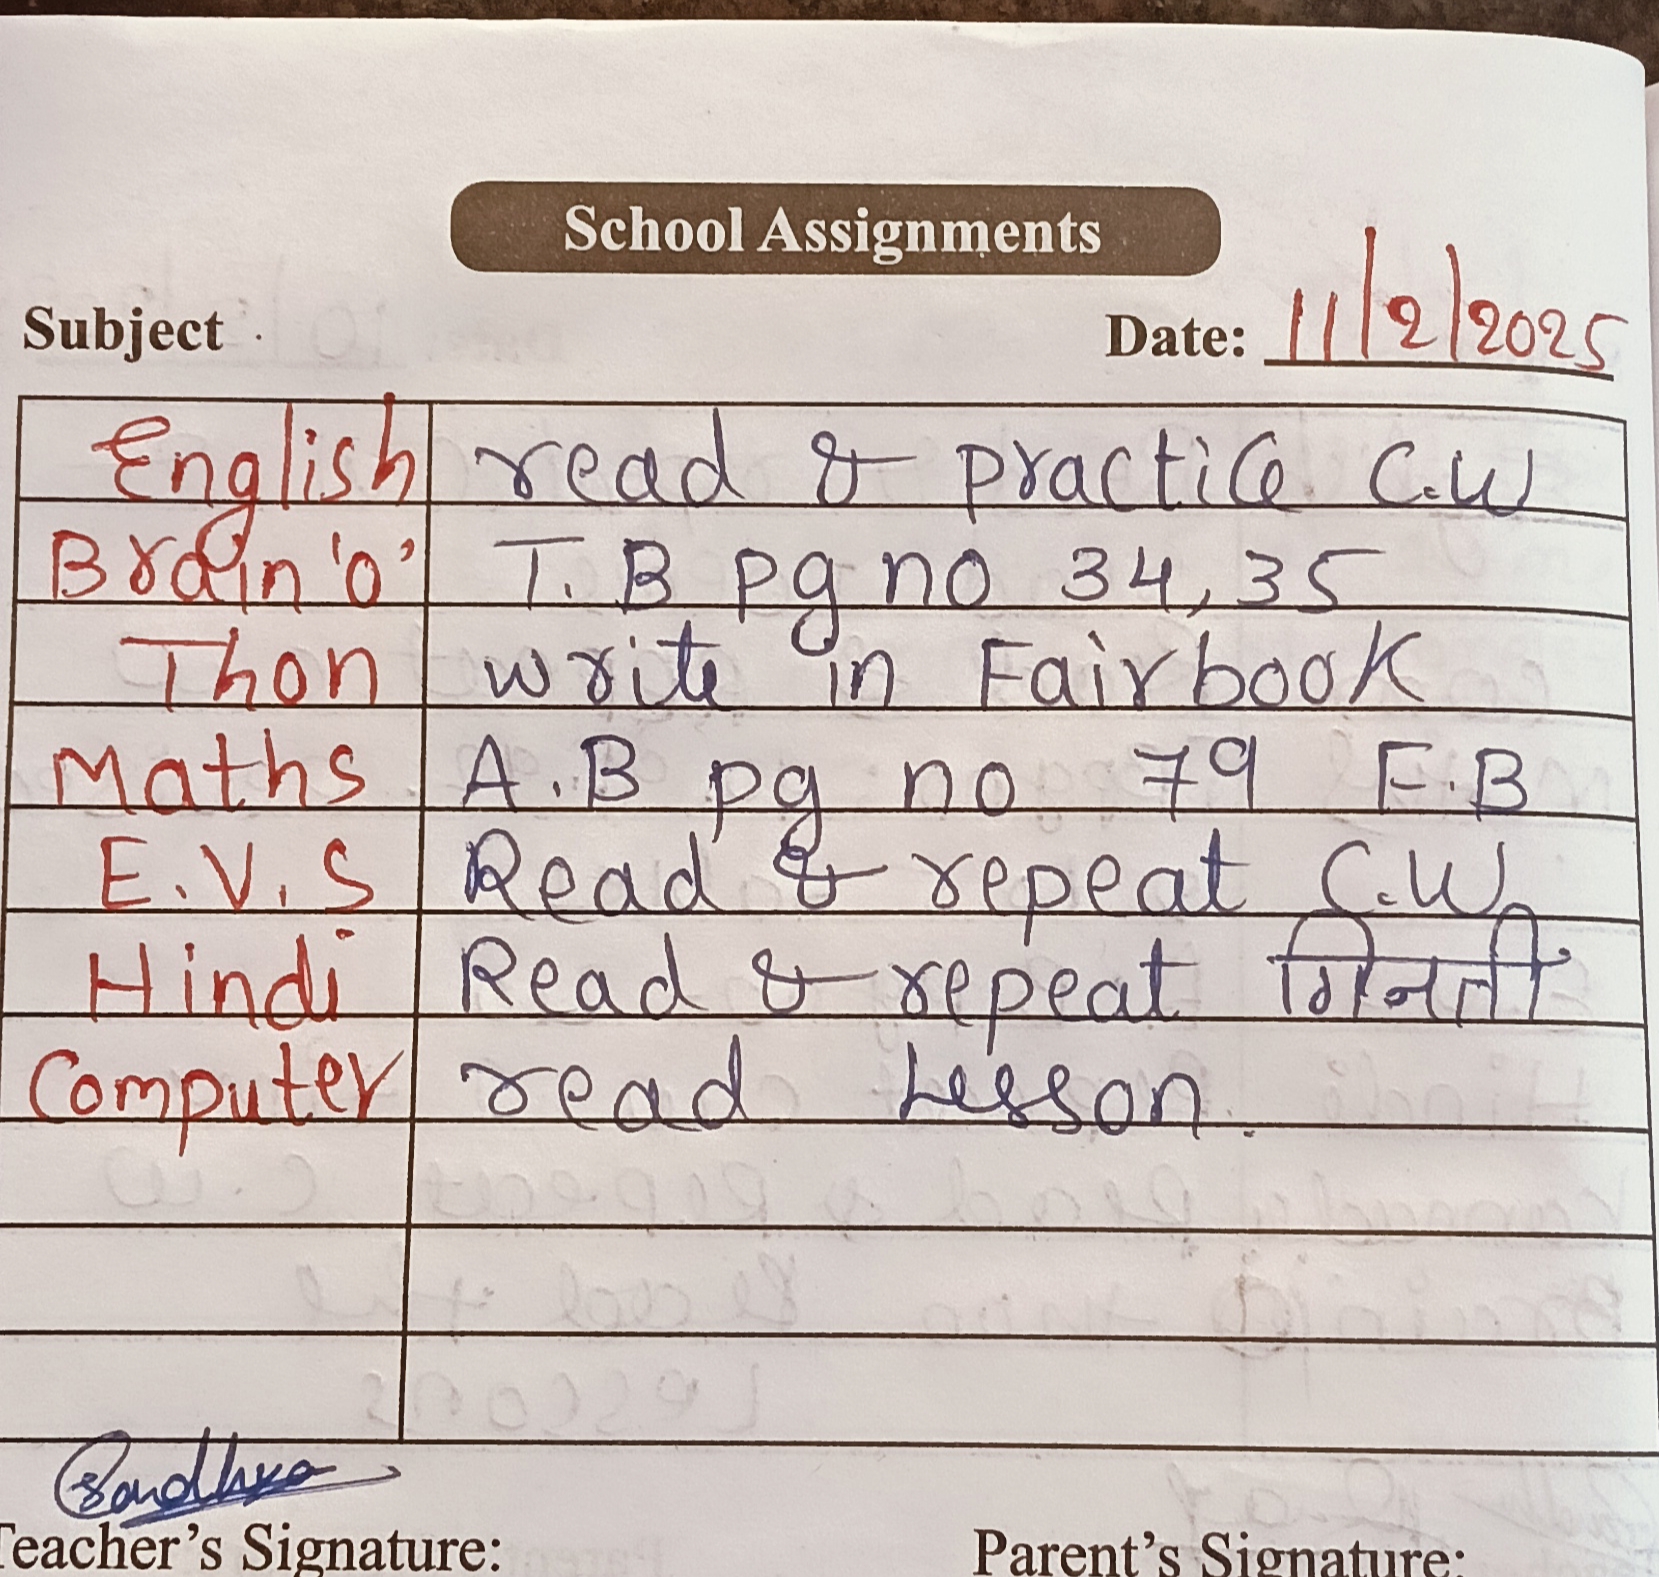 School Assignments
Subject Date: 11/2/2025
English read & practice C.W
Brain 'o' T.B pg no 34, 35
Thon write in Fairbook
Maths A.B pg no 79 F.B
E.V.S Read & repeat C.W
Hindi Read & repeat गिनती
Computer read Lesson.
Sandhya
Teacher's Signature: Parent's Signature: